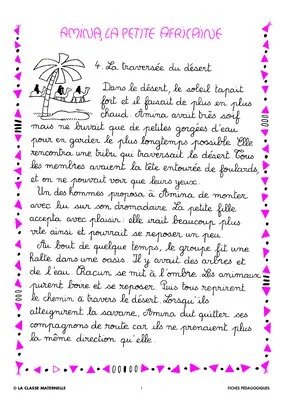 AMINA, LA PETITE AFRICAINE
4. La traversée du désert
Dans le désert, le soleil tapait
fort et il faisait de plus en plus
chaud. Amina avait très soif
mais ne buvait que de petites gorgées d'eau
pour en garder le plus longtemps possible. Elle
rencontra une tribu qui traversait le désert. Tous
les membres avaient la tête entourée de foulards,
et on ne pouvait voir que leurs yeux.
Un des hommes proposa à Amina de monter
avec lui sur son dromadaire. La petite fille
accepta avec plaisir : elle irait beaucoup plus
vite ainsi et pourrait se reposer un peu.
Au bout de quelque temps, le groupe fit une
halte dans une oasis. Il y avait des arbres et
de l'eau. Chacun se mit à l'ombre. Les animaux
purent boire et se reposer. Puis tous reprirent
le chemin à travers le désert. Lorsqu'ils
atteignirent la savane, Amina dut quitter ses
compagnons de route car ils ne prenaient plus
la même direction qu'elle.
© LA CLASSE MATERNELLE
1
FICHES PÉDAGOGIQUES